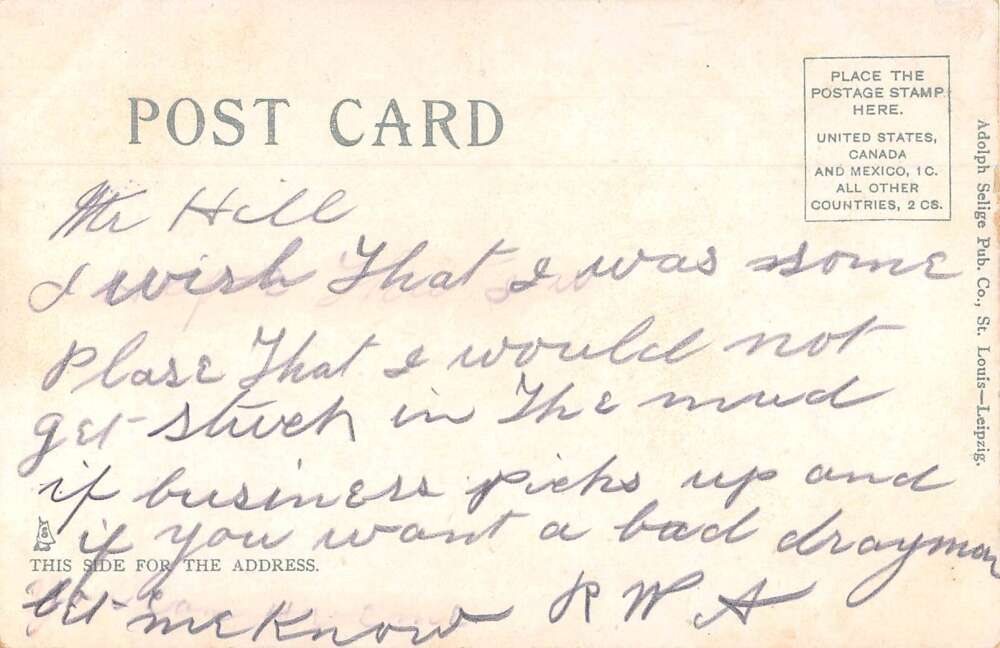 POST CARD
PLACE THE
POSTAGE STAMP
HERE.
UNITED STATES,
CANADA
AND MEXICO, 1 C.
ALL OTHER
COUNTRIES, 2 CS.
Adolph Selige Pub. Co., St. Louis—Leipzig.
Mr Hill
I wish That I was some
Plase That I would not
get stuck in The mud
if business picks up and
if you want a bad drayman
THIS SIDE FOR THE ADDRESS.
let me Know R W A